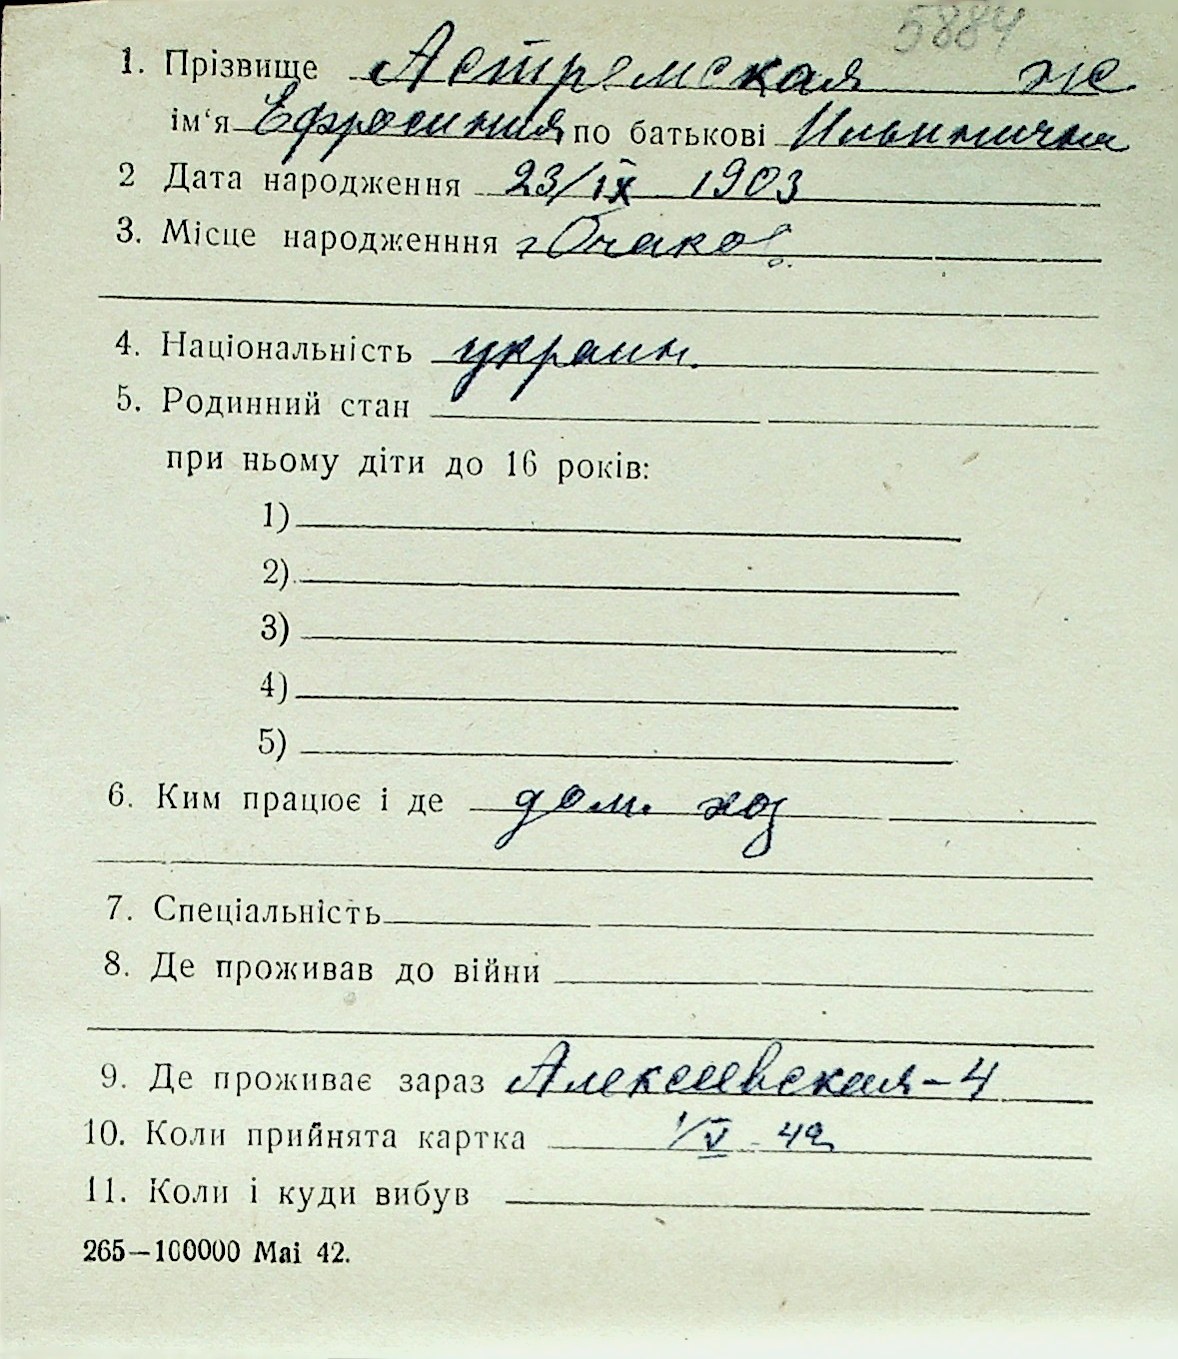 5884
1. Прізвище Астремская же
ім‘я Ефросиния по батькові Ильинична
2 Дата народження 23/IX 1903
3. Місце народженння г. Очаков.
4. Національність украин.
5. Родинний стан
при ньому діти до 16 років:
1)
2)
3)
4)
5)
6. Ким працює і де дом. хоз
7. Спеціальність
8. Де проживав до війни
9. Де проживає зараз Алексеевская-4
10. Коли прийнята картка 1/V-42
11. Коли і куди вибув
265—100000 Mai 42.